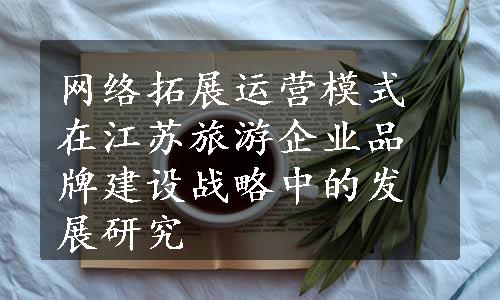 网络拓展运营模式
在江苏旅游企业品
牌建设战略中的发
展研究